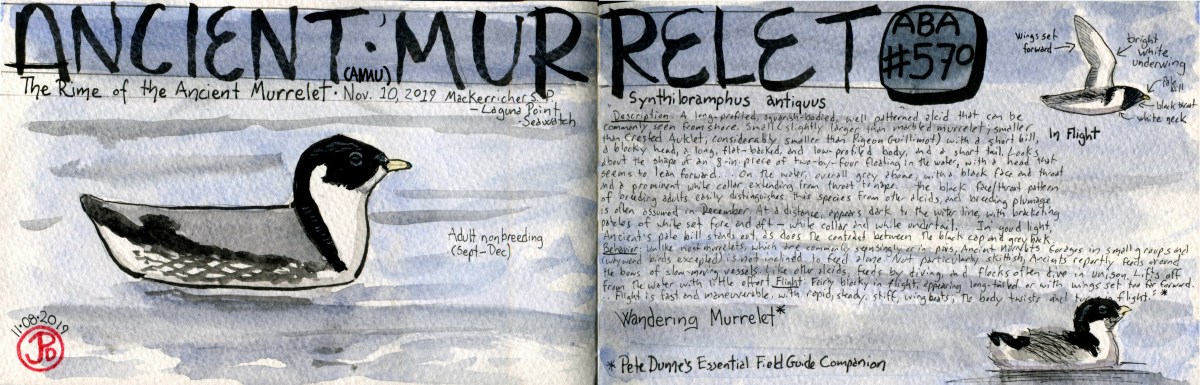 ANCIENT · MURRELET
(AMMU)
ABA
#570
The Rime of the Ancient Murrelet · Nov. 10, 2019 MacKerricher S.P.
- Laguna Point
- Seawatch
Synthiloramphus antiquus
"Description: A long-profiled, squarish-bodied, well patterned alcid that can be
commonly seen from shore. Small (slightly larger than marbled murrelet; smaller
than Crested Auklet, considerably smaller than Pigeon Guillimot) with a short bill,
a blocky head, a long, flat-backed, and low-profiled body, and a short tail. Looks
about the shape of an 8-in. piece of two-by-four floating in the water, with a head that
seems to lean forward... On the water, overall grey above, with a black face and throat
and a prominent white collar extending from throat to nape. ... the black face/throat pattern
of breeding adults easily distinguishes this species from other alcids, and breeding plumage
is often assumed in December. At a distance, appears dark to the water line, with bracketing
patches of white set fore and aft - white collar and white undertail. In good light,
ancient's pale bill stands out, as does the contrast between the black cap and grey back.
Behavior: Unlike most murrelets, which are commonly seen singly or in pairs, Ancient Murrelets forages in small groups and
(wayward birds excepted) is not inclined to feed alone. Not particularly skittish, Ancients reportly feeds around
the bows of slow-moving vessels. Like other alcids, feeds by diving, and flocks often dive in unison. Lifts off
from the water with little effort. Flight: Fairly blocky in flight, appearing long-tailed or with wings set too far forward.
.. Flight is fast and maneuverable, with rapid, steady, stiff, wing beats; the body twists and turns in flight." *
wings set
forward
bright
white
underwing
Pale
bill
black throat
white
In Flight
Adult nonbreeding
(Sept-Dec)
Wandering Murrelet*
* Pete Dunne's Essential Field Guide Companion
11·08·2019
JPD